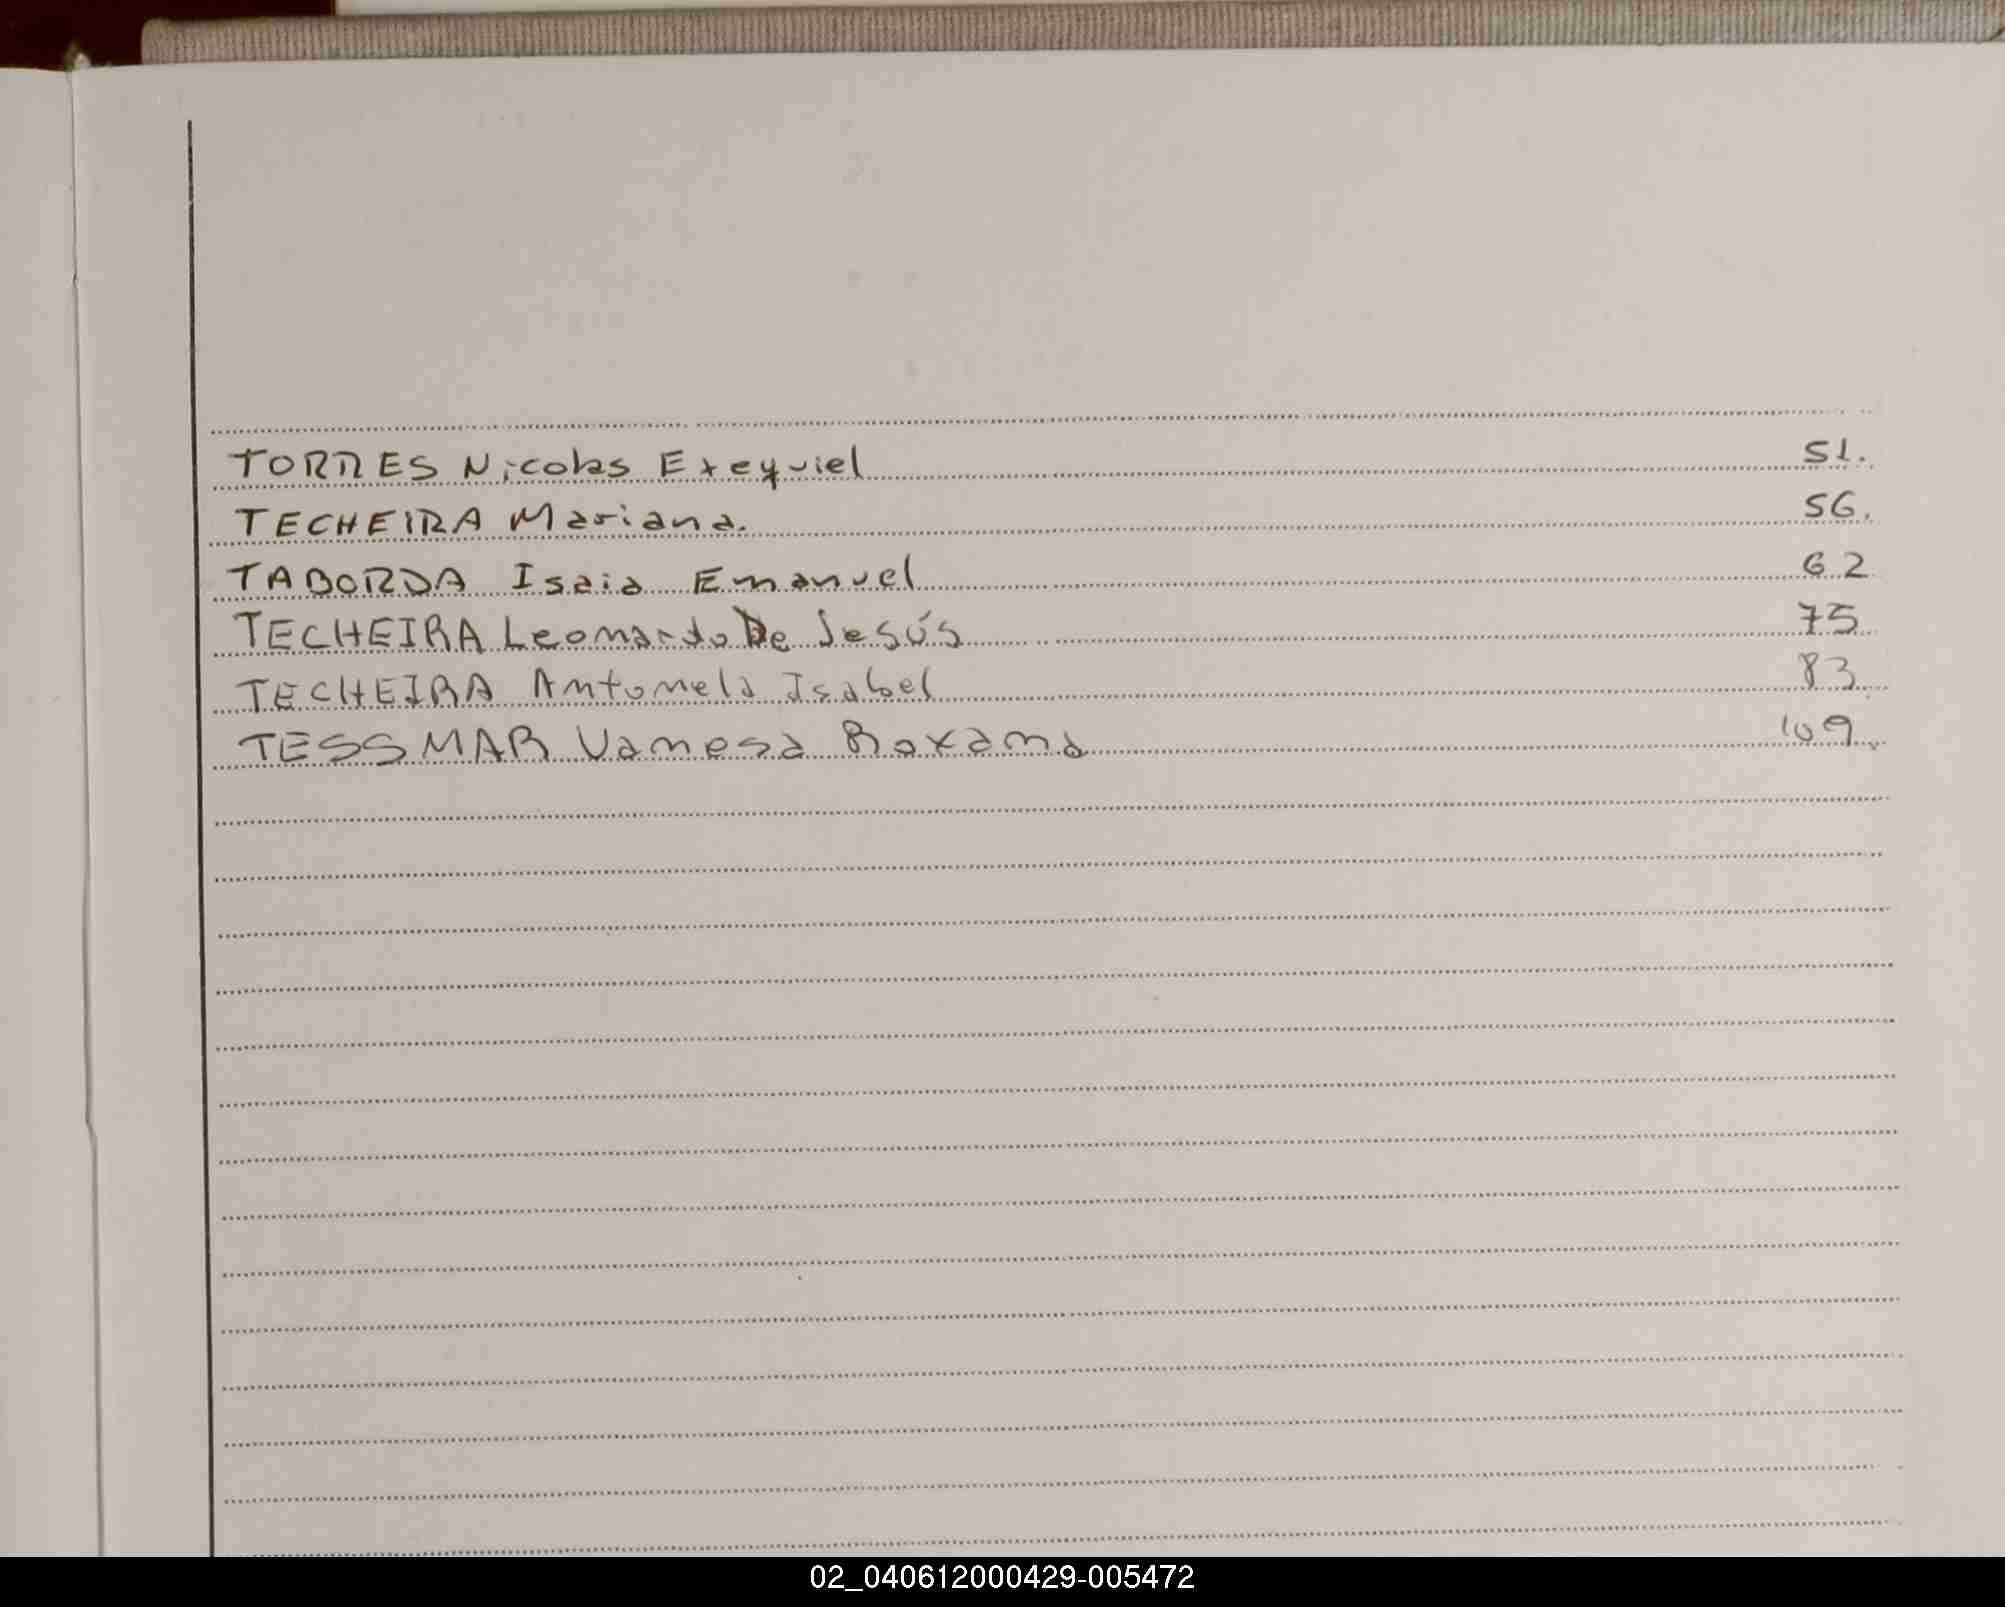 TORRES Nicolas Exequiel 51.
TECHEIRA Mariana. 56.
TABORDA Isaia Emanuel 62
TECHEIRA Leonardo De Jesús 75
TECHEIRA Antonela Isabel 83
TESSMAR Vanesa Roxana 109.
02_040612000429-005472